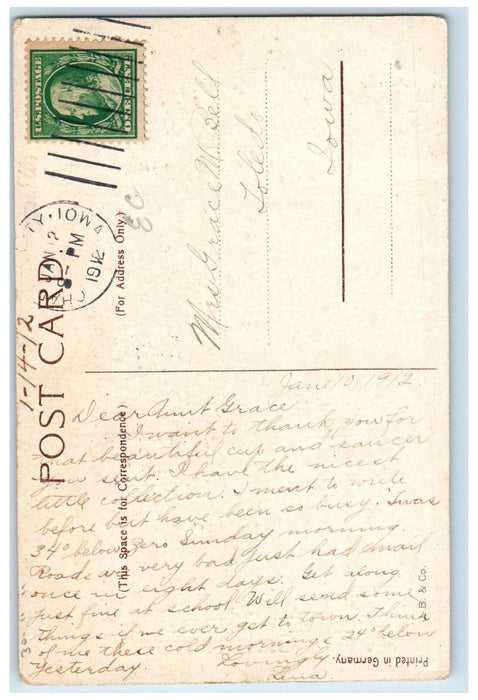 U.S. POSTAGE
ONE CENT
IOWA
JAN 12
8 - PM
1912
1-14-12
POST CARD.
(This Space is for Correspondence)
(For Address Only)
Mrs. Grace McDell
Toledo
Iowa
Jan. 10, 1912
Dear Aunt Grace
I want to thank you for
that beautiful cup and saucer
you sent. I have the nicest
little collection. I ment to write
before but have been so busy. Twas
34° below zero Sunday morning.
Roads are very bad just had mail
once in eight days. Get along
just fine at school. Will send some
things if we ever get to town. Think
of me these cold mornings 24° below
yesterday. Lovingly
Lena
B. & Co.
Printed in Germany.